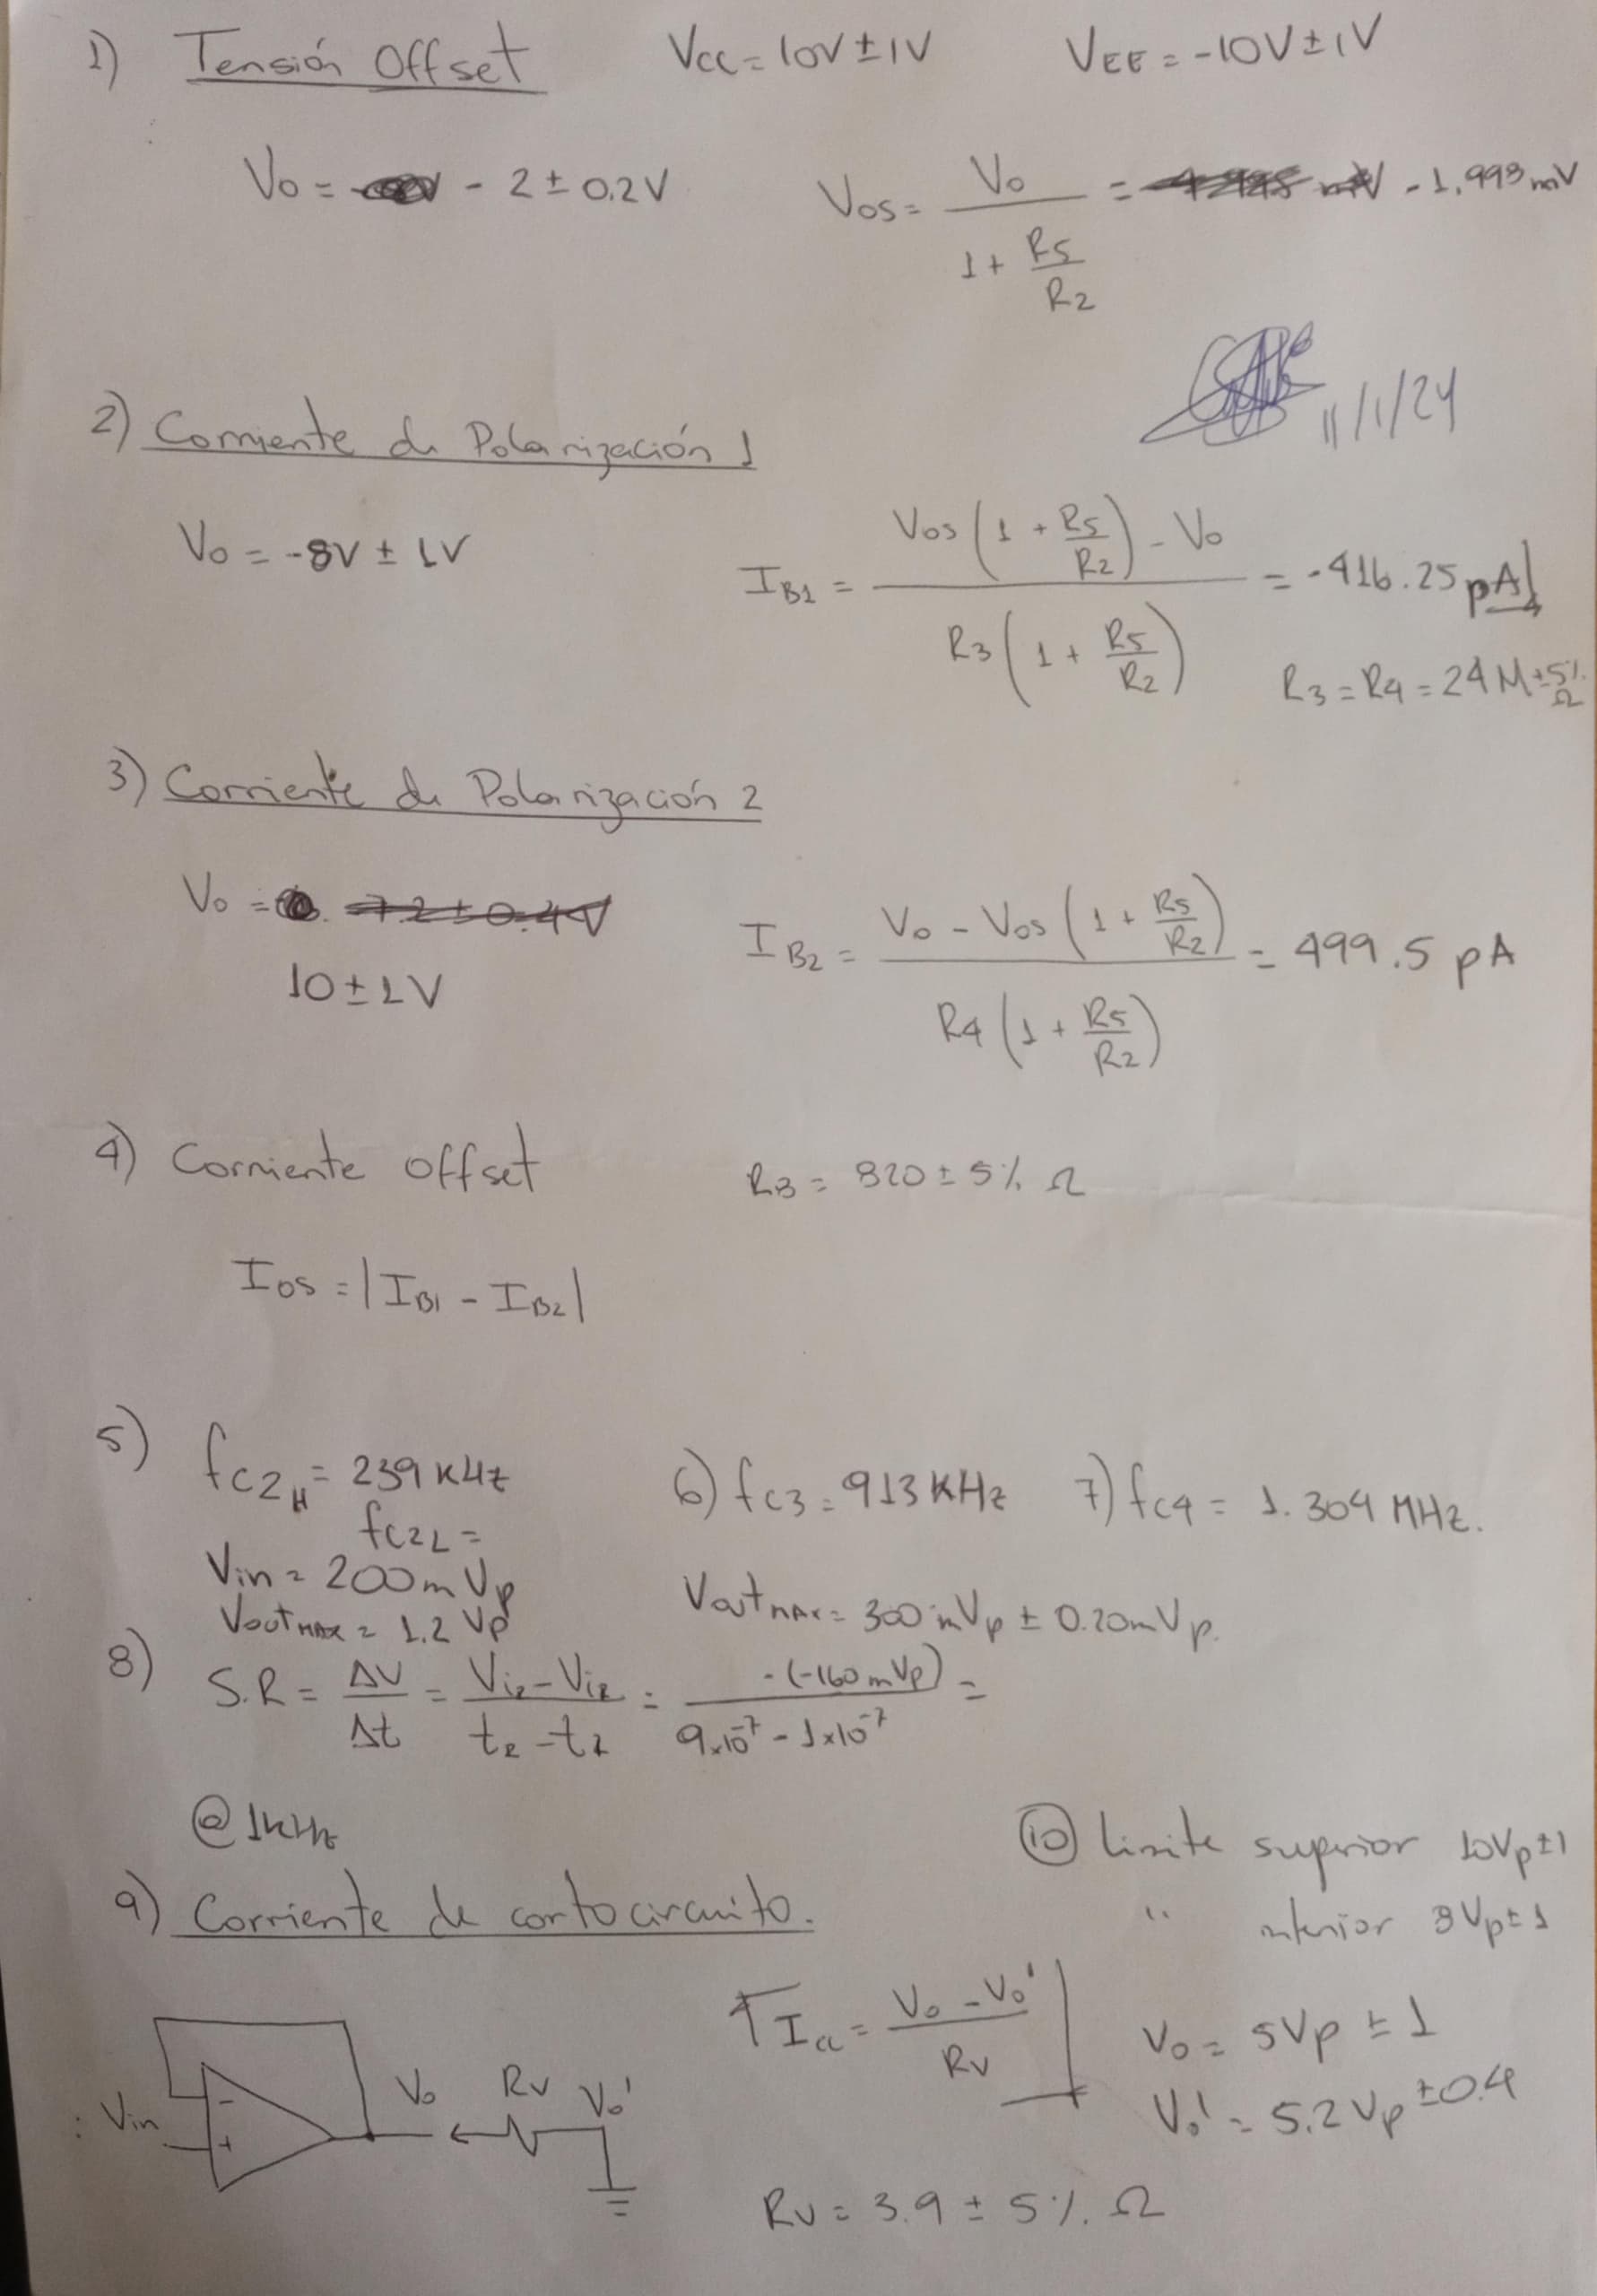 1) Tensión Offset Vcc = 10V ± 1V VEE = -10V ± 1V
Vo = - 2 ± 0.2V Vos = Vo / (1 + R5/R2) = - 1.998 mV
11/1/24
2) Corriente de Polarización 1
Vo = -8V ± 1V IB1 = (Vos (1 + R5/R2) - Vo) / (R3 (1 + R5/R2)) = -416.25 pA
R3 = R4 = 24 M ± 5% Ω
3) Corriente de Polarización 2
Vo = 7.2 ± 0.4V
10 ± 1V IB2 = (Vo - Vos (1 + R5/R2)) / (R4 (1 + R5/R2)) = 499.5 pA
4) Corriente offset R3 = 820 ± 5% Ω
Ios = |IB1 - IB2|
5) fc2H = 239 KHz 6) fc3 = 913 KHz 7) fc4 = 1.304 MHz.
fc2L =
Vin = 200 m Vp
Voutmax = 1.2 Vp Voutmax = 300 mVp ± 0.20mVp.
8) S.R = ΔV/Δt = = -(-160 mVp) / (9x10^-7 - 1x10^-7) =
@ 1kHz
10 limite superior 10Vp ± 1
" inferior 8Vp ± 1
9) Corriente de cortocircuito.
Icc = (Vo - Vo') / Rv
Vo = 5Vp ± 1
Vo' = 5.2 Vp ± 0.4
: Vin - + Vo Rv Vo'
Rv = 3.9 ± 5% Ω